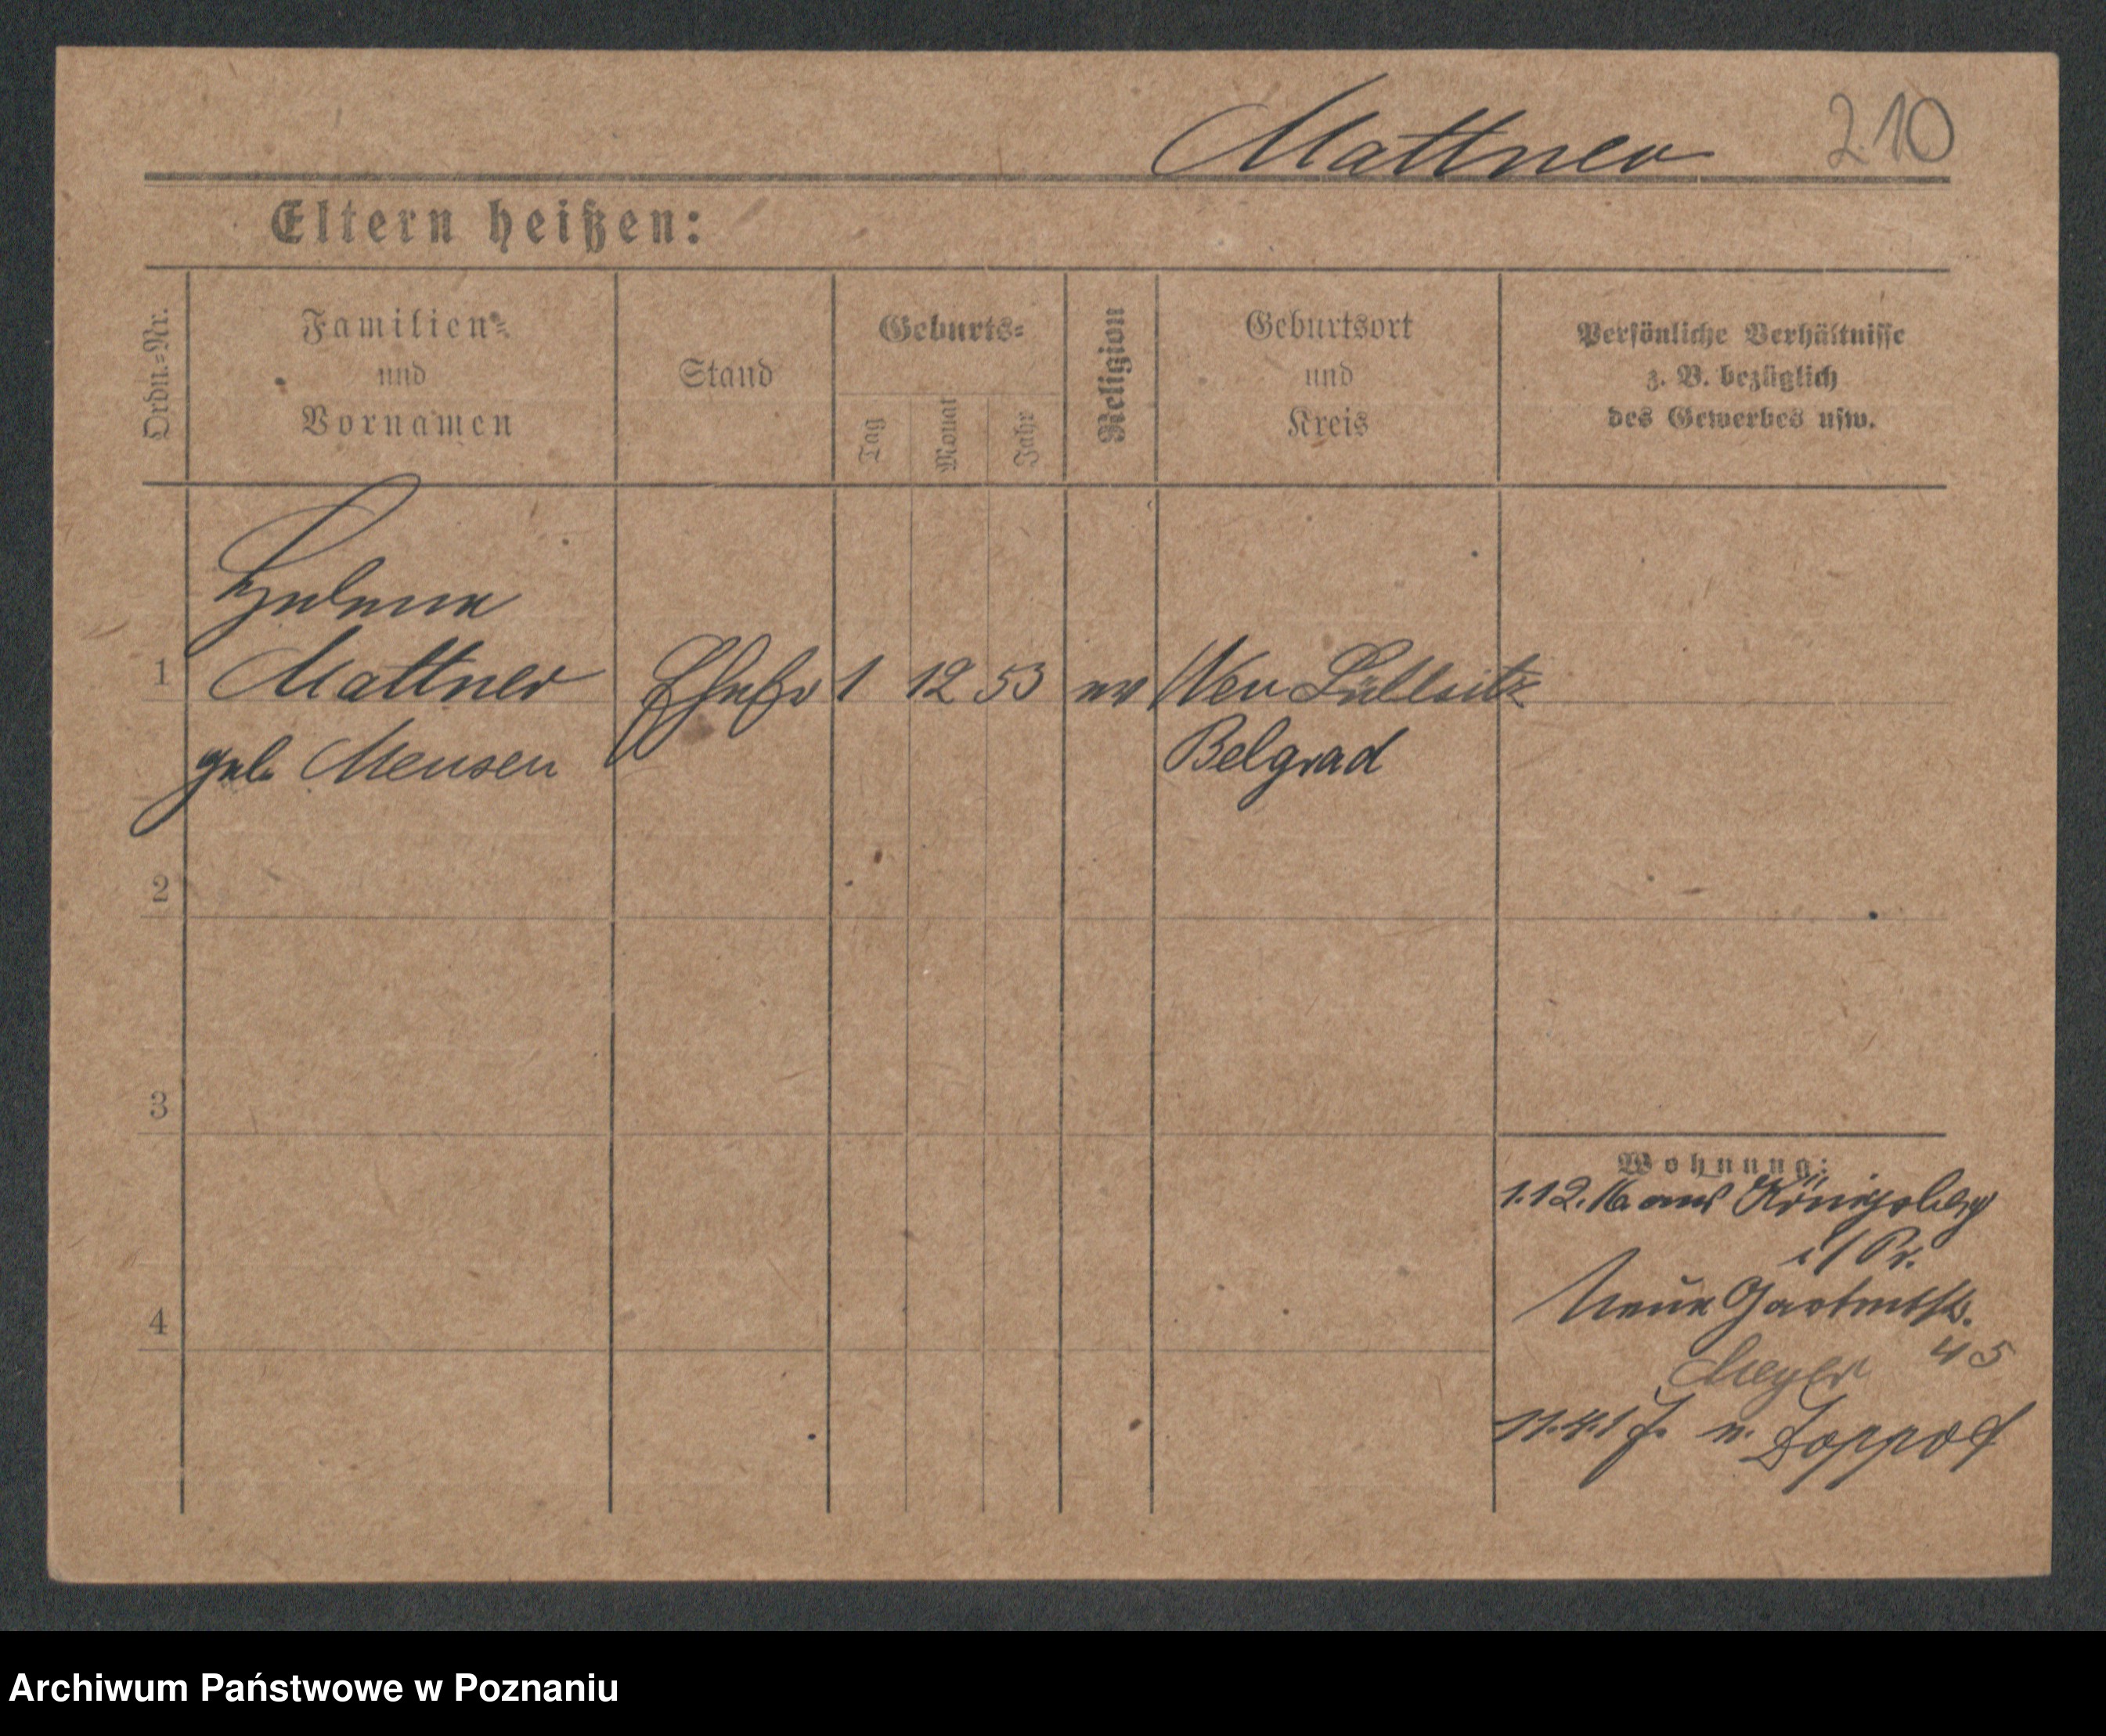 Mattner 210
Eltern heißen:
Ordn.-Nr.
Familien-
und
Vornamen
Stand
Geburts-
Tag
Monat
Jahr
Religion
Geburtsort
und
Kreis
Persönliche Verhältnisse
z. B. bezüglich
des Gewerbes usw.
Helene
1 Mattner Ehefr 1 12 53 ev Neu
geb. Meusen Belgrad
2
3
Wohnung:
1.12.16 aus Königsberg
i/Pr.
4 Neue Gartenstr.
45
Meyer
11.4.17. n. Zoppot
Archiwum Państwowe w Poznaniu